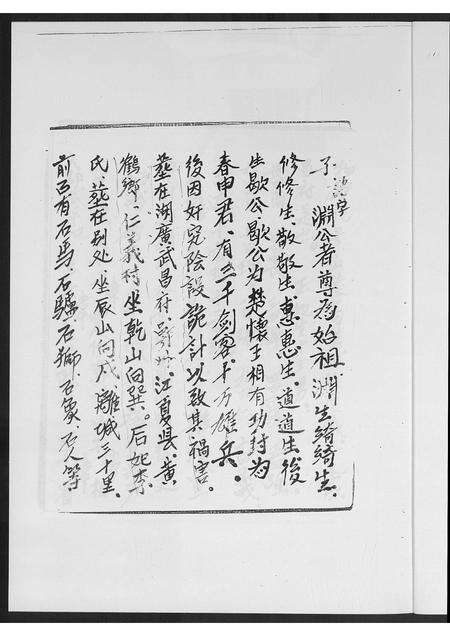 了 淵公者尊為始祖淵生綺綺生、
字
修修生、敬敬生、惠惠生、道道生後
生歇公歇公為楚懷王相有功封為
春申君、有三千劍客、千万雄兵、
後因奸宄陰設詭計以致其禍害、
墓在湖廣武昌村、鄂州、江夏县、黄
鶴鄉仁義村坐乾山向巽。后妣李
氏墓在别处坐辰山向戍、離城三十里、
前后有石馬、石驢石獅、石象、石人等